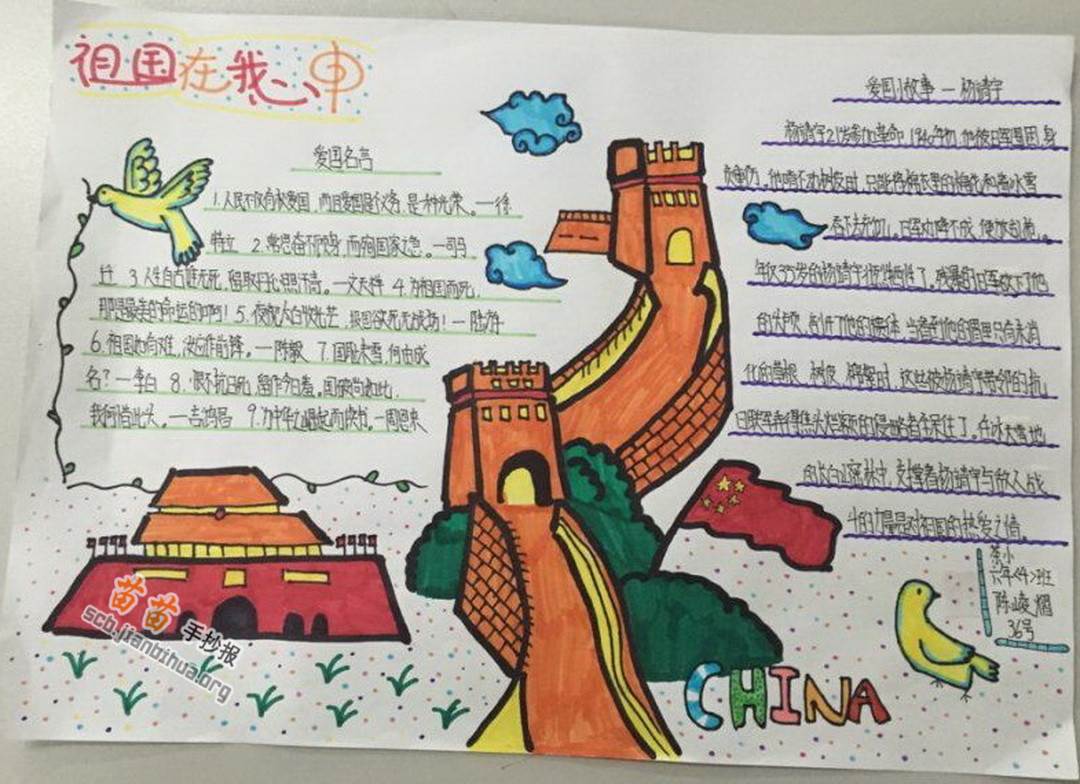 祖国在我心中
爱国名言
1.人民不仅有权爱国,而且爱国是个义务,是一种光荣。—徐
特立 2.常思奋不顾身,而殉国家之急。—司马
迁 3.人生自古谁无死,留取丹心照汗青。—文天祥 4.为祖国而死,
那是最美的命运的啊! 5.夜视太白收光芒,报国欲死无战场!—陆游
6.祖国如有难,汝应作前锋。—陈毅 7.国耻未雪,何由成
名?—李白 8.恨不抗日死,留作今日羞。国破尚如此,
我何惜此头。—吉鸿昌 9.为中华之崛起而读书。—周恩来
爱国小故事—杨靖宇
杨靖宇21岁参加革命,1940年初,他被日军围困,身
负重伤。他啃不动树皮时,只能将棉衣里的棉花和着冰雪
吞下去充饥。日军劝降不成,便放乱枪。
年仅35岁的杨靖宇壮烈牺牲了。残暴的日军砍下了他
的头颅,剖开了他的 当看到他的胃里只有未消
化的草根、树皮、棉絮时,这些被杨靖宇带领的抗
日联军弄得焦头烂额的侵略者惊呆住了。在冰天雪地
的长白山密林中,支撑着杨靖宇与敌人战
斗的力量是对祖国的热爱之情。
小
六年<4>班
陈
36号
CHINA
苗苗
手抄报
scb.jianbihua.org